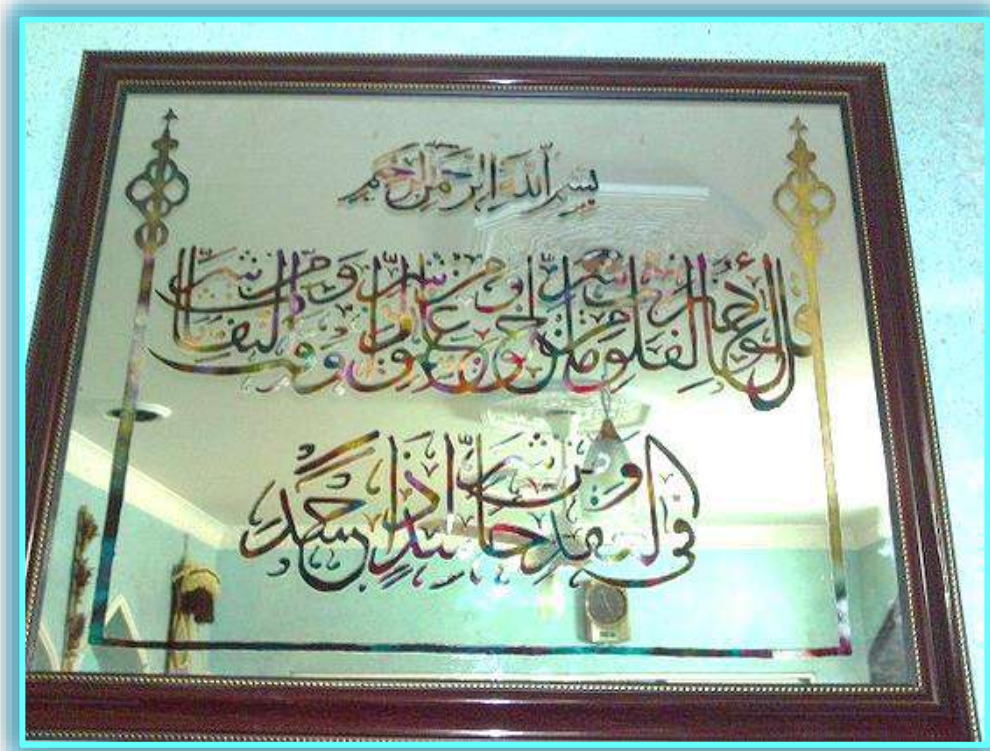 بِسْمِ اللَّهِ الرَّحْمَٰنِ الرَّحِيمِ
قُلْ أَعُوذُ بِرَبِّ الْفَلَقِ مِن شَرِّ مَا خَلَقَ وَمِن شَرِّ غَاسِقٍ إِذَا وَقَبَ وَمِن شَرِّ النَّفَّاثَاتِ
فِي الْعُقَدِ وَمِن شَرِّ حَاسِدٍ إِذَا حَسَدَ